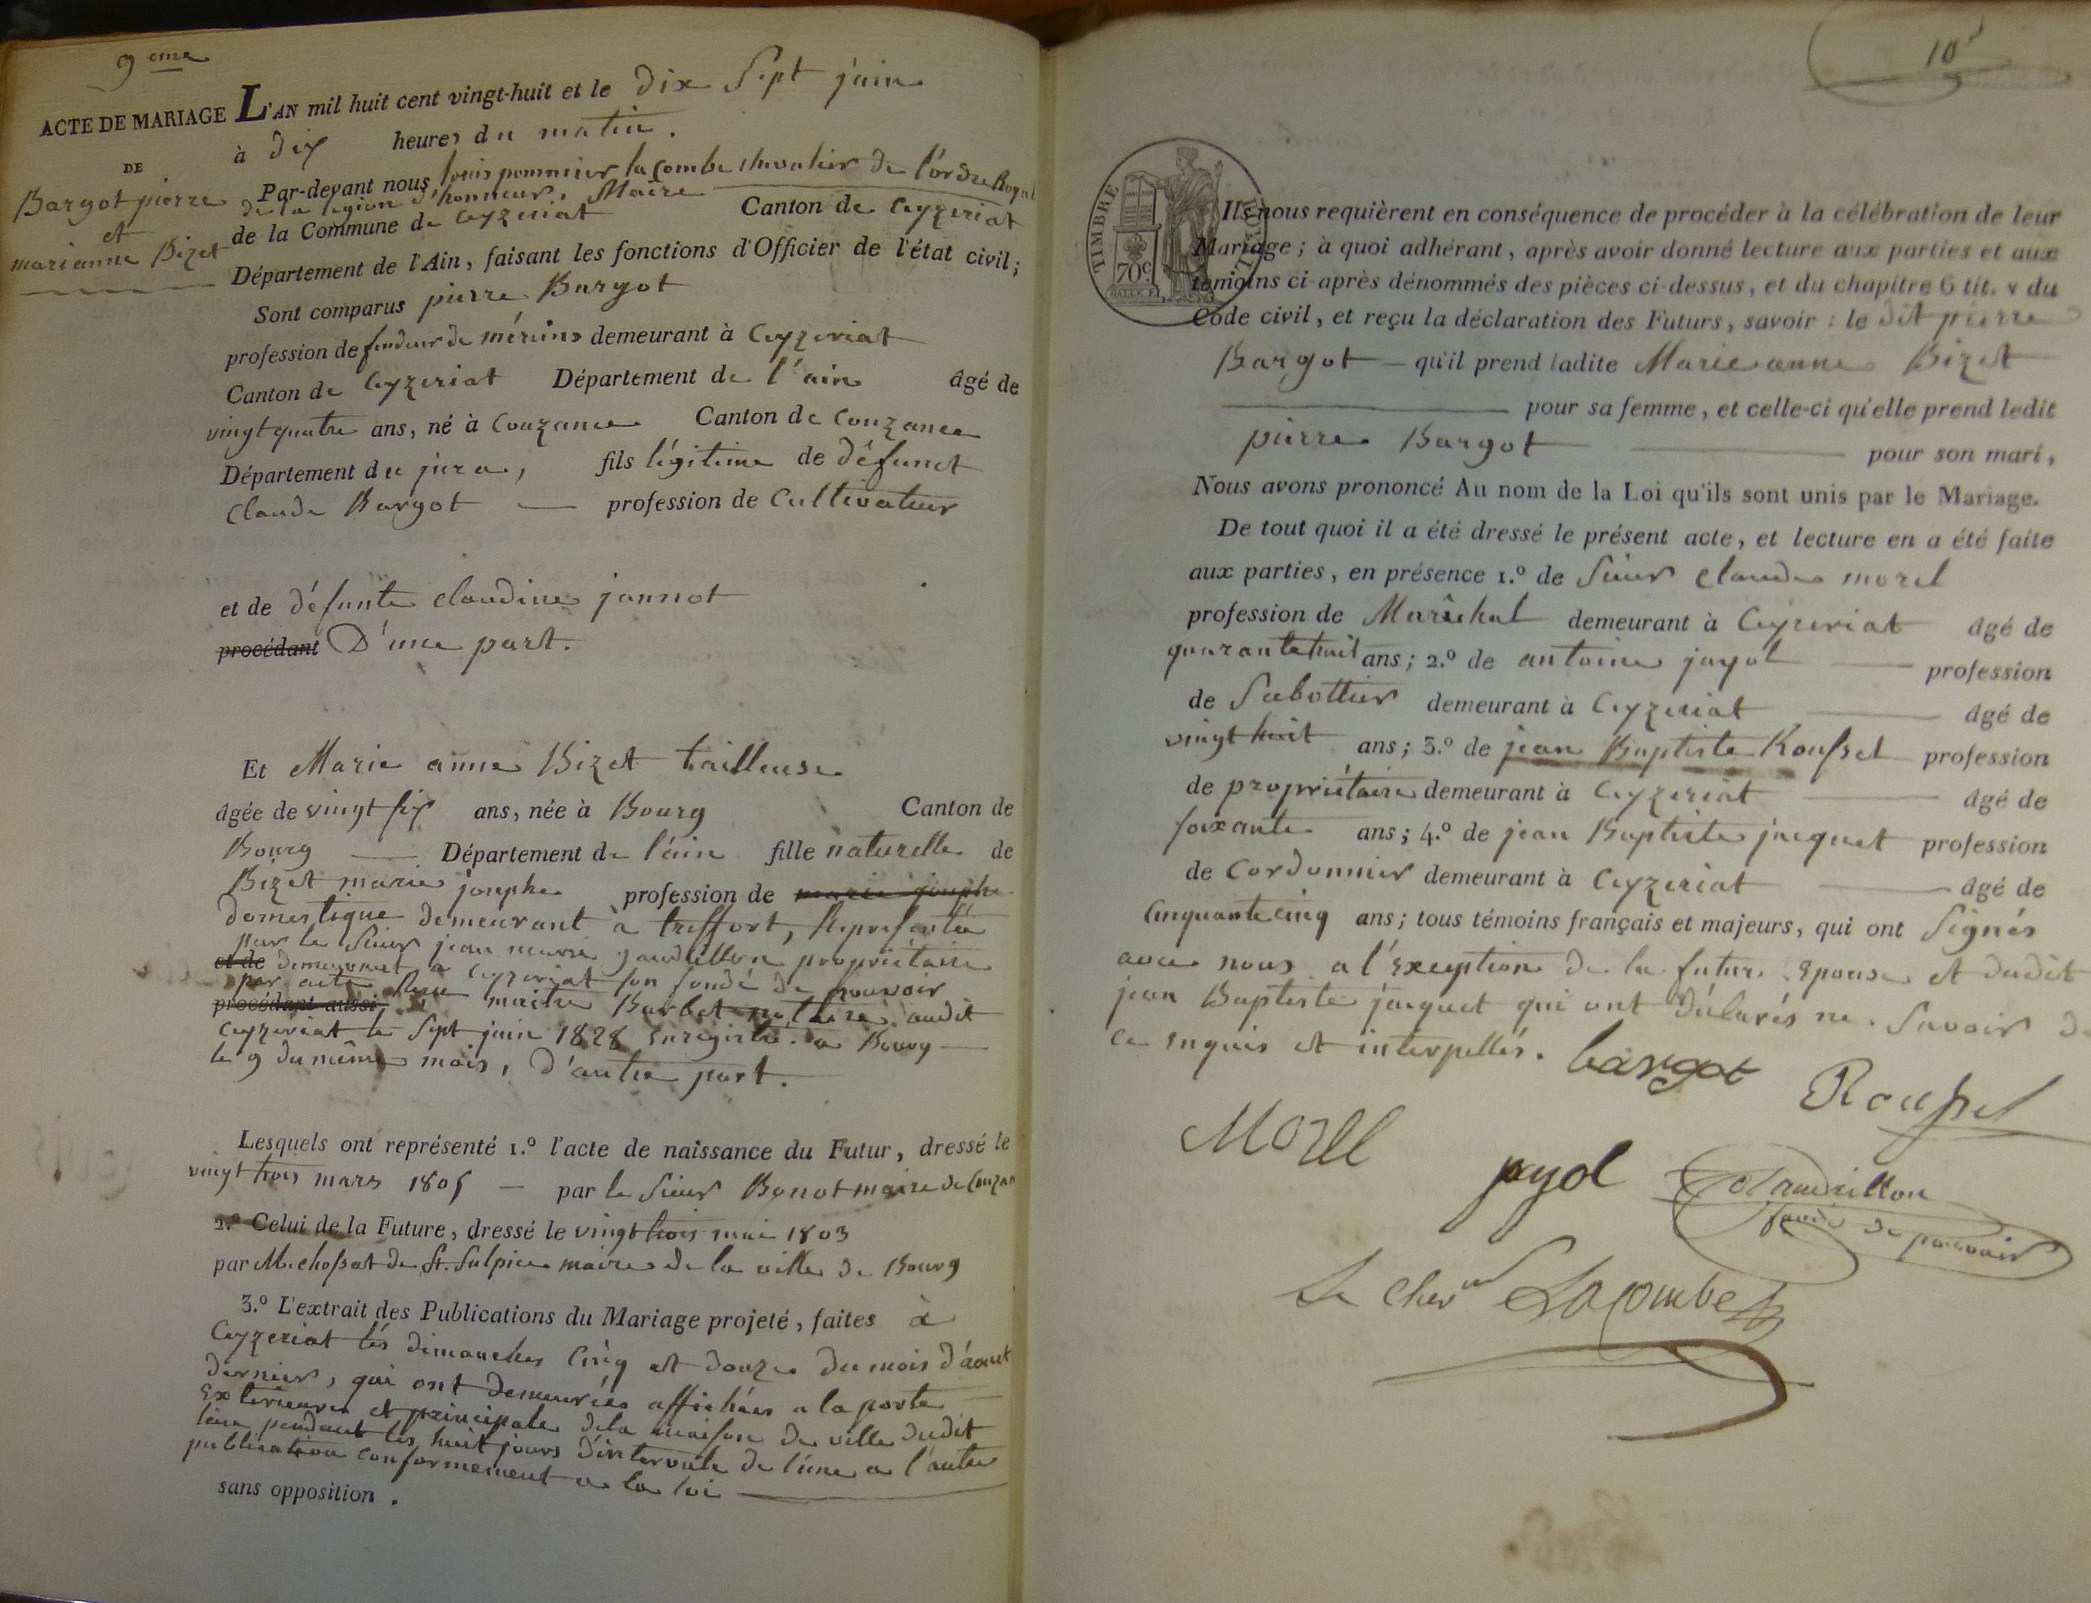 9eme
ACTE DE MARIAGE
DE
Bargot pierre
et
marianne Bizet
L'AN mil huit cent vingt-huit et le dix Sept juin
à dix heures du matin.
Par-devant nous, louis pommier lacombe chevalier de l'ordre Royal
de la légion d'honneur, Maire
de la Commune de Ceyzeriat Canton de Ceyzeriat
Département de l'Ain, faisant les fonctions d'Officier de l'état civil;
Sont comparus pierre Bargot
profession de fendeur de mérins demeurant à Ceyzeriat
Canton de Ceyzeriat Département de l'ain âgé de
vingt quatre ans, né à Couzance Canton de Couzance
Département du jura, fils légitime de défunct
Claude Bargot — profession de Cultivateur
et de défunte claudine jannot
procédant D'une part.
Et Marie anne Bizet tailleuse
âgée de vingt six ans, née à Bourg Canton de
Bourg — Département de l'ain fille naturelle de
Bizet marie josephe profession de marie josephe
domestique demeurant à treffort, Représentée
par le Sieur jean marie gaudillon propriétaire
et de demeurant a Ceyzeriat son fondé de pouvoir
par acte Reçu maitre Barbet notaire audit
procédant aussi
Ceyzeriat le Sept juin 1828 Enregistré a Bourg —
le 9 du même mois, D'autre part.
Lesquels ont représenté 1.º l'acte de naissance du Futur, dressé le
vingt trois mars 1805 — par le Sieur Bonot maire de Couzan
2.º Celui de la Future, dressé le vingt trois mai 1803
par M. chossat de St. Sulpice maire de la ville de Bourg
3.º L'extrait des Publications du Mariage projeté, faites à
Ceyzeriat lés dimanches Cinq et douze du mois d'août
dernier, qui ont demeurées affichées a la porte
Exterieure et principale dela maison de ville dudit
lieu pendant les huit jours d'intervale de l'une a l'autre
publication conformement a la loi —
sans opposition.
10
TIMBRE ROYAL
70c
Ils nous requièrent en conséquence de procéder à la célébration de leur
Mariage; à quoi adhérant, après avoir donné lecture aux parties et aux
témoins ci-après dénommés des pièces ci-dessus, et du chapitre 6 tit. v du
Code civil, et reçu la déclaration des Futurs, savoir: le dit pierre
Bargot — qu'il prend ladite Marie anne Bizet
— pour sa femme, et celle-ci qu'elle prend ledit
pierre Bargot — pour son mari,
Nous avons prononcé Au nom de la Loi qu'ils sont unis par le Mariage.
De tout quoi il a été dressé le présent acte, et lecture en a été faite
aux parties, en présence 1.º de Sieur Claude morel
profession de Maréchal demeurant à Ceyzeriat âgé de
quarante huit ans; 2.º de antoine jayol — profession
de Sabottier demeurant à Ceyzeriat — âgé de
vingt huit ans; 3.º de jean Baptiste Roussel profession
de propriétaire demeurant à Ceyzeriat — âgé de
soixante ans; 4.º de jean Baptiste jacquet profession
de Cordonnier demeurant à Ceyzeriat — âgé de
Cinquante cinq ans; tous témoins français et majeurs, qui ont Signés
avec nous a l'Exception de la future Epouse et dudit
jean Baptiste jacquet qui ont déclarés ne Savoir de
ce Enquis et interpellés. bargot
Roussel
Morel
jayol
Gaudillon
fondé de pouvoir
Le Cher Lacombe